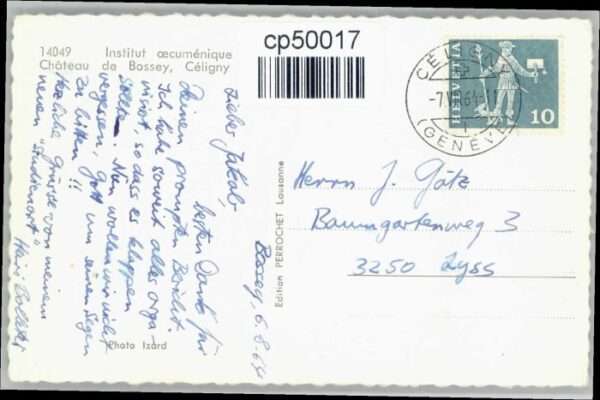 14049 Institut œcuménique
Château de Bossey, Céligny
cp50017
HELVETIA
10
CÉLIGNY
-7.VIII.64
(GENÈVE)
Bossey, 6.8.64
Lieber Jakob,
besten Dank für
Deinen prompten Bericht.
Ich habe soweit alles orga-
nisiert, so dass es klappen
sollte. Nun wollen wir nicht
vergessen, Gott um seinen Segen
zu bitten!!
Herzliche Grüsse von meinem
neuen "Studienort"
Photo Izard
Edition PERROCHET Lausanne
Herrn J. Götz
Baumgartenweg 3
3250 Lyss